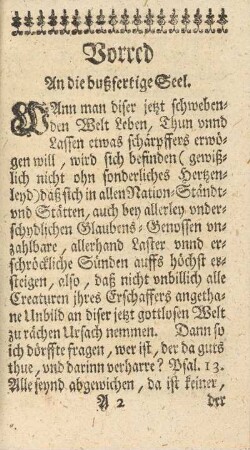 Vorred
An die bußfertige Seel.
WAnn man diser jetzt schweben-
den Welt Leben, Thun vnnd
Lassen etwas schärpffers erwö-
gen will, wird sich befinden (gewiß-
lich nicht ohn sonderliches Hertzen-
leyd) daß sich in allen Nation-Ständt-
vnd Stätten, auch bey allerley vnder-
schydlichen Glaubens-Genossen vn-
zahlbare, allerhand Laster vnnd er-
schröckliche Sünden auffs höchst er-
steigen, also, daß nicht vnbillich alle
Creaturen jhres Erschaffers angetha-
ne Unbild an diser jetzt gottlosen Welt
zu rächen Ursach nemmen. Dann so
ich dörffte fragen, wer ist, der da guts
thue, und darinn verharre? Psal. 13.
Alle seynd abgewichen, da ist keiner,
A 2 der